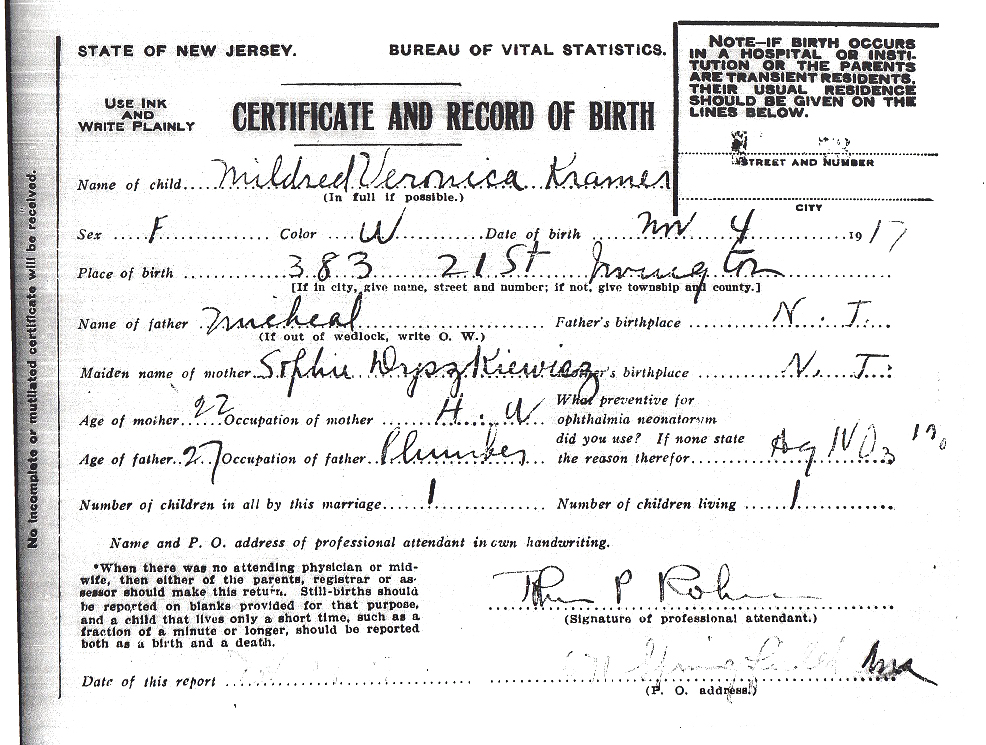 STATE OF NEW JERSEY. BUREAU OF VITAL STATISTICS.
NOTE—IF BIRTH OCCURS
IN A HOSPITAL OR INSTI-
TUTION OR THE PARENTS
ARE TRANSIENT RESIDENTS,
THEIR USUAL RESIDENCE
SHOULD BE GIVEN ON THE
LINES BELOW.
STREET AND NUMBER
CITY
USE INK
AND
WRITE PLAINLY
CERTIFICATE AND RECORD OF BIRTH
Name of child Mildred Veronica Kramer
(In full if possible.)
Sex F Color W Date of birth Nov 4 1917
Place of birth 383 21 St Irvington
[If in city, give name, street and number; if not, give township and county.]
Name of father Micheal Father's birthplace N. J.
(If out of wedlock, write O. W.)
Maiden name of mother Sophie Mother's birthplace N. J.
Age of mother 22 Occupation of mother H. W
What preventive for
ophthalmia neonatorum
did you use? If none state
the reason therefor Ag NO3 1%
Age of father 27 Occupation of father Plumber
Number of children in all by this marriage 1 Number of children living 1
Name and P. O. address of professional attendant in own handwriting.
*When there was no attending physician or mid-
wife, then either of the parents, registrar or as-
sessor should make this return. Still-births should
be reported on blanks provided for that purpose,
and a child that lives only a short time, such as a
fraction of a minute or longer, should be reported
both as a birth and a death.
P
(Signature of professional attendant.)
Date of this report
(P. O. address.)
No incomplete or mutilated certificate will be received.